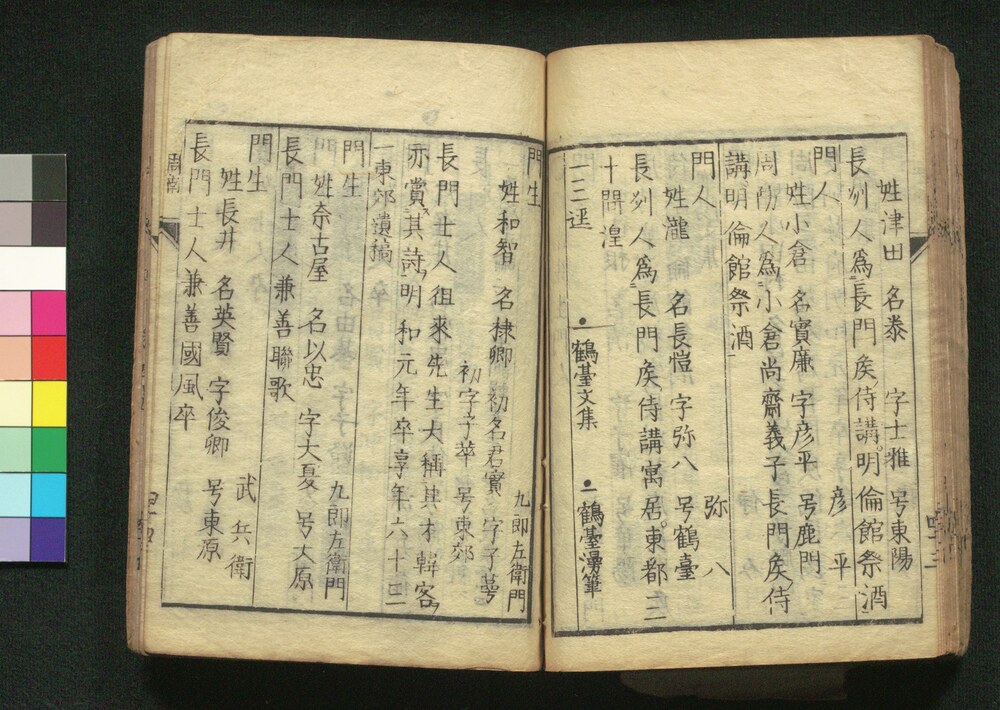 姓津田 名泰 字士雅 号東陽
長列人爲長門矦侍講明倫館祭酒
門人 彦平
姓小倉 名實廉 字彦平 号鹿門
周防人爲小倉尚齋義子長門矦侍
講明倫館祭酒
門人 弥八
姓瀧 名長愷 字弥八 号鶴臺
長列人爲長門矦侍講寓居東都二
十間湟
一二三逕 ●鶴臺文集 ●鶴臺漫筆
門生 九郎左衛門
姓和智 名棣卿 初名君實 字子萼
初字子華 号東郊
長門士人徂來先生大稱其才韓客
亦賞其詩明和元年卒享年六十二
一東郊遺稿
門生 九郎左衛門
姓奈古屋 名以忠 字大夏 号大原
長門士人兼善聯歌
門生 武兵衛
姓長井 名英賢 字俊卿 号東原
長門士人兼善國風卒
周南